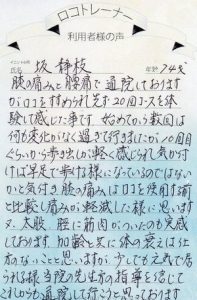 ロコトレーナー
利用者様の声
氏名 坂 静枝 年齢 74才
膝の痛みと腰痛で通院しております
がロコをすすめられ先ず20回コースを体
験して感じた事です 始めての数回は
何も変化がなく過ぎて行きましたが10回目
ぐらいから歩き出しが軽く感じられ気が付
けば早足で歩ける様になっているではない
かと気付き膝の痛みはロコを使用する前
と比較し痛みが軽減した様に思います
又、太股、脛に筋肉がついたのも実感
しております 加齢と共に体の衰えは仕
方のないことと思いますが少しでも元気で居
られる様当院の先生方の指導を信じて
これからも通院して行こうと思っております